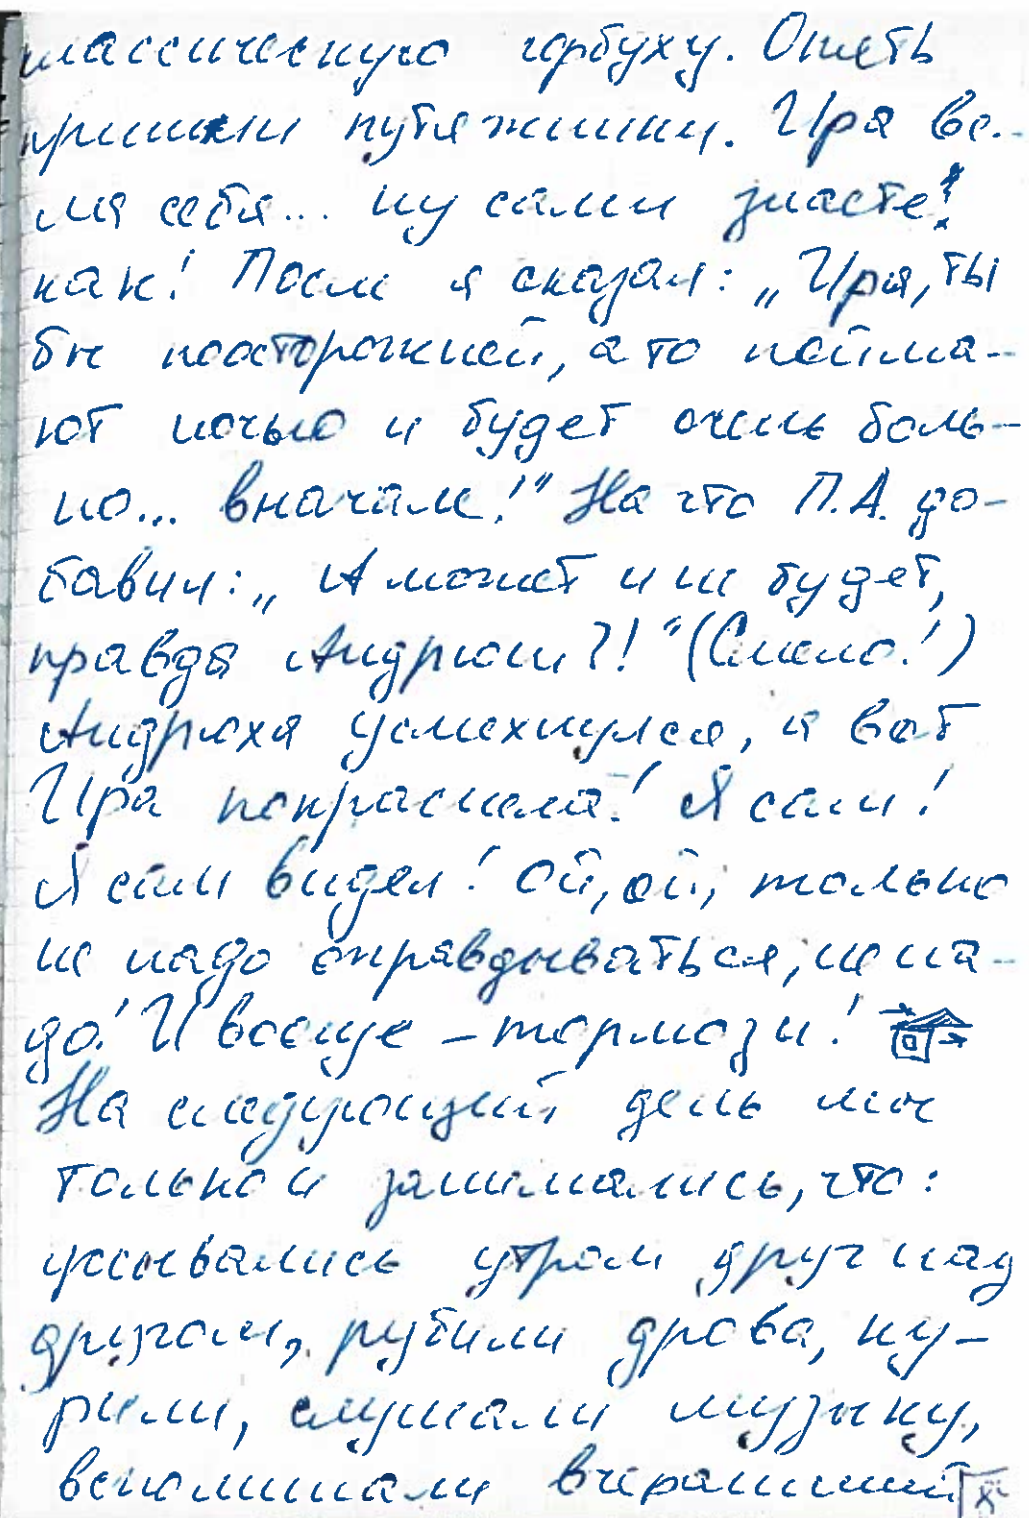 классическую чербуху. Опять
пришли путяжники. Ира ве-
ла себя... ну сами знаете!
как! После я сказал: „Ира, ты
бы поосторожней, а то пойма-
ют ночью и будет очень боль-
но... вначале!" На что П.А. до-
бавил: „А может и не будет,
правда Андрюш?!" (Смело!)
Андрюха усмехнулся, а вот
Ира покраснела! Я сам!
Я сам видел! Ой, ой, только
не надо оправдываться, не на-
до! И воєще – тормози!
На следующий день мы
только и занимались, что:
ужывались утром друг над
другом, рубили дрова, ку-
рили, слушали музыку,
вспоминали вчерашний